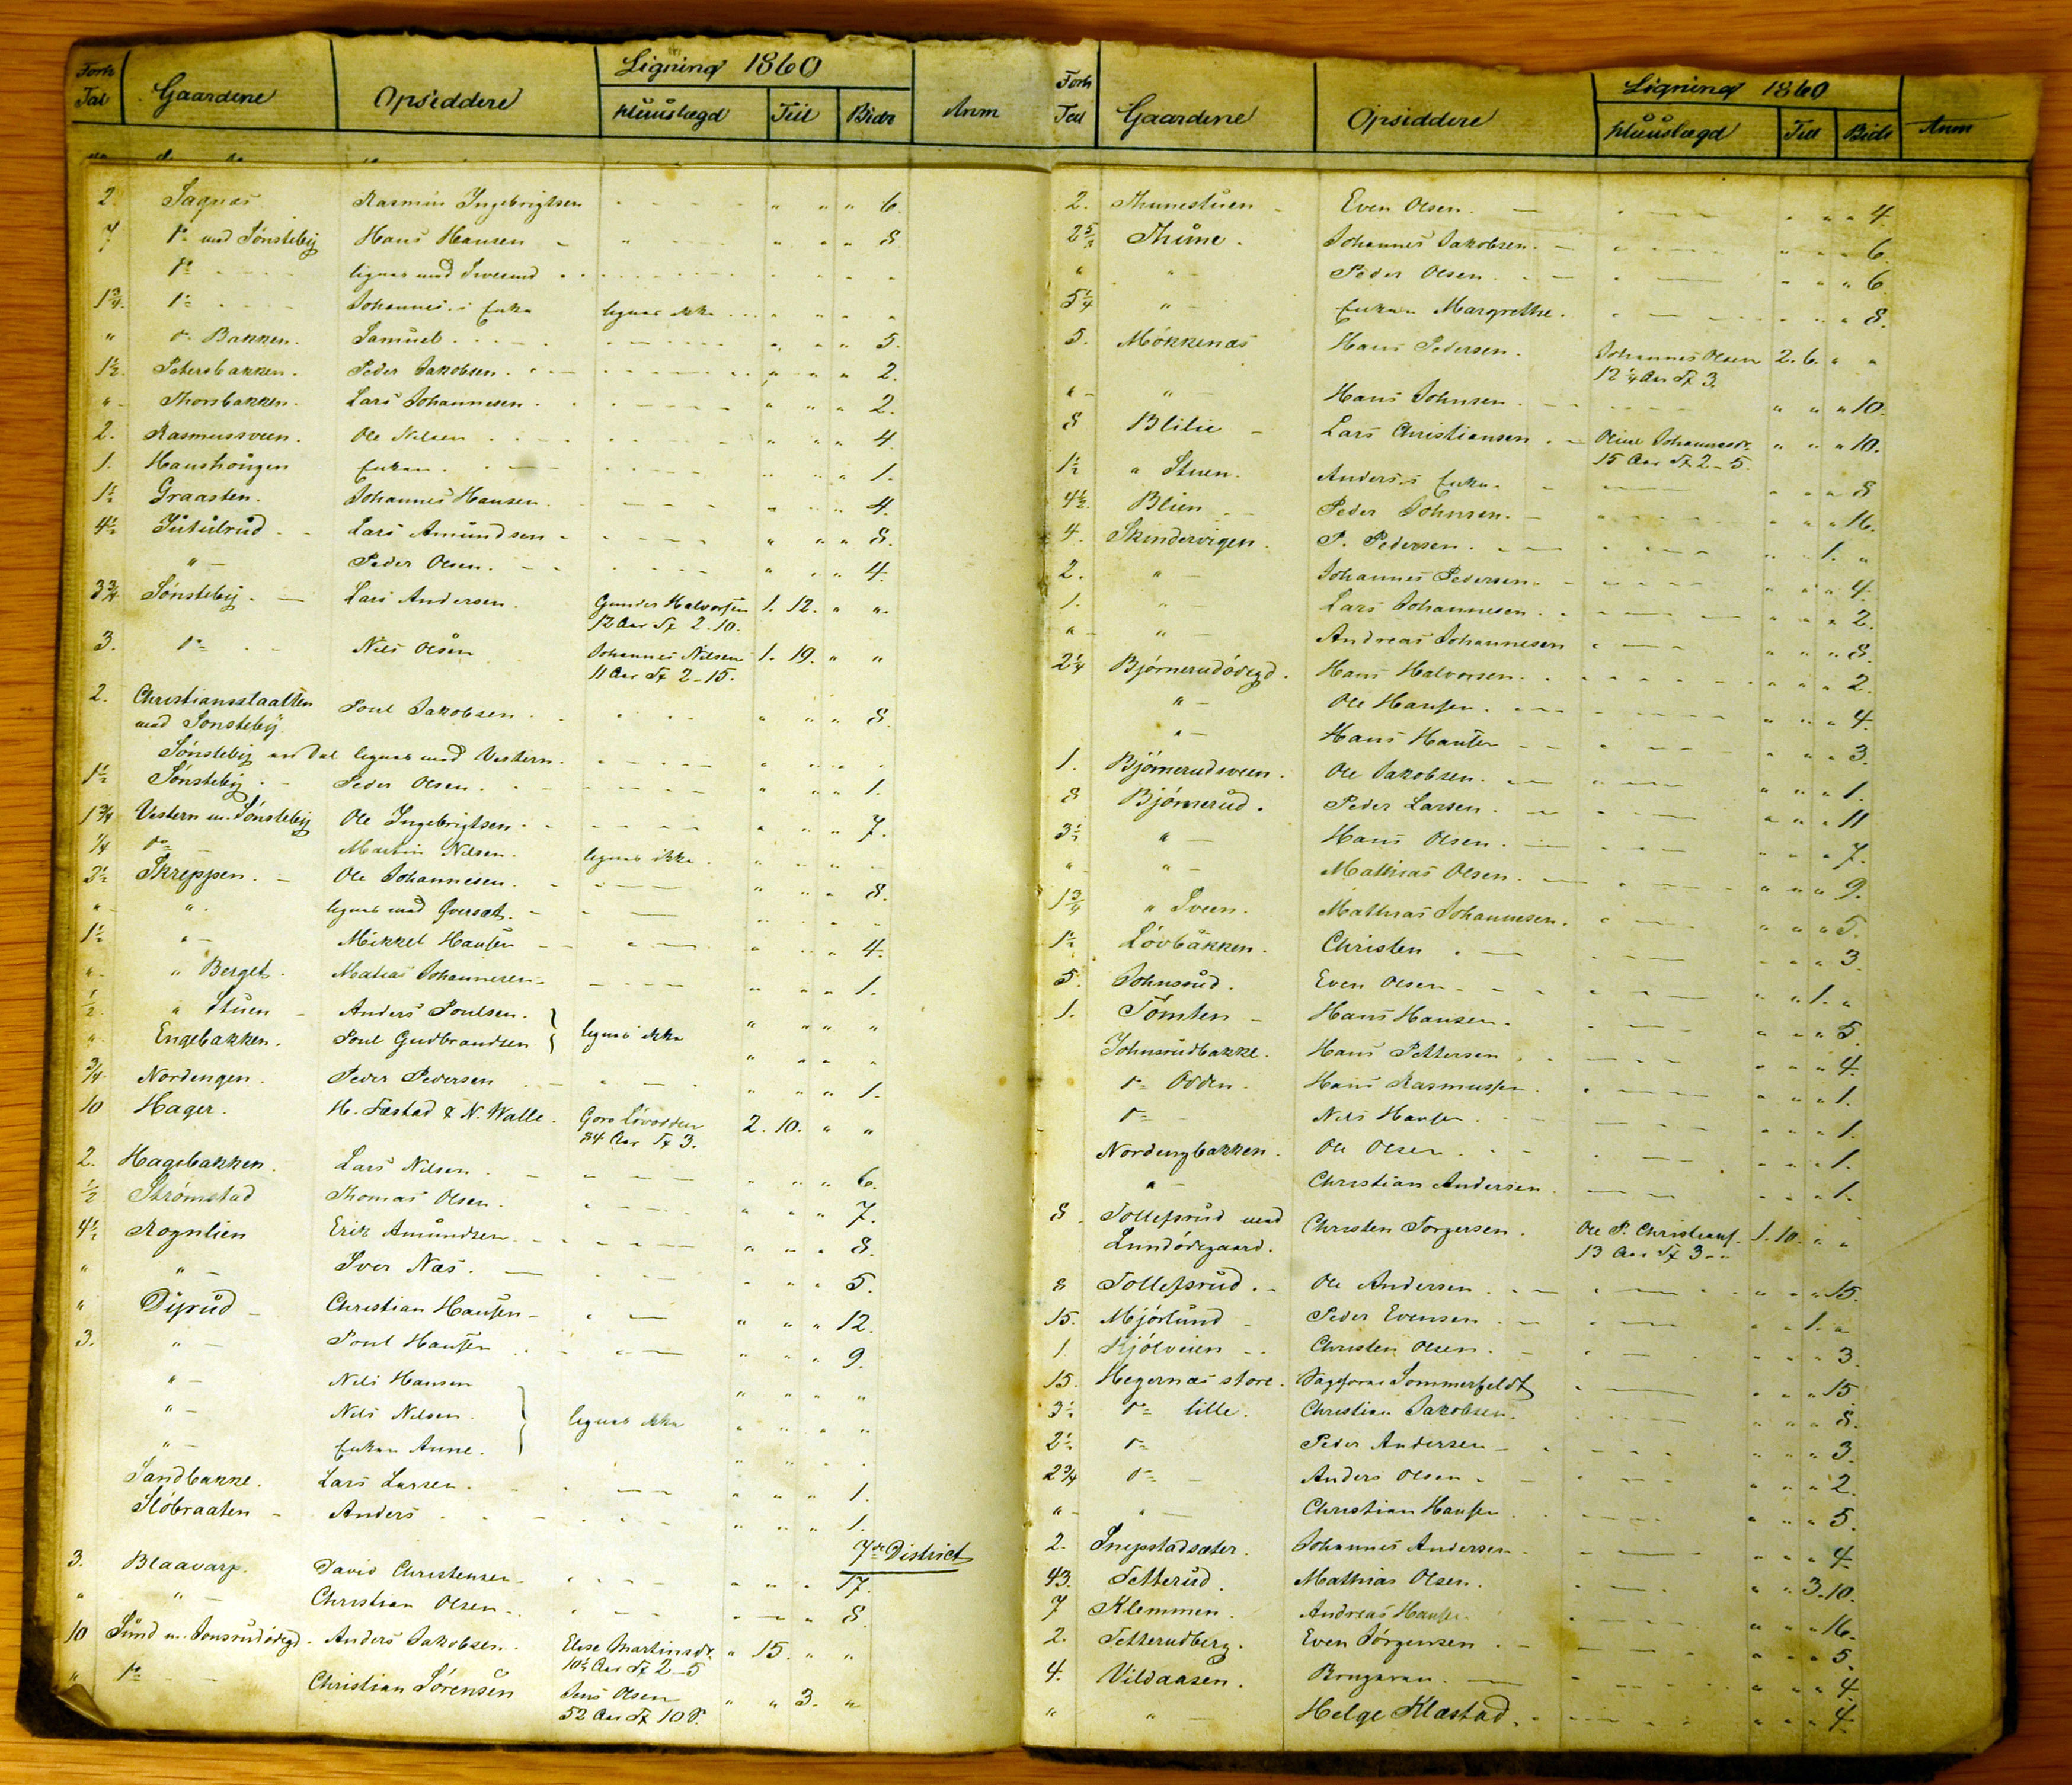 Forh Tal Gaardene Opsiddere Ligning 1860 Huuslægd Till Bidr Anm
2. Sagnæs Rasmus Ingebrigtsen " " " 6
7 do med Sönsteby Hans Hansen " " " 8
do lignes med
1 3/4 do Johannes's Enke lignes ikke " " "
" do Bakken. Samuel " " " 5.
1 1/2 Petersbakken. Peder Jakobsen. " " " 2.
" Thorsbakken. Lars Johannesen " " " 2.
2. Rasmussveen. Ole Nilsen " " " 4
1. Haushöugen Enken. " " " 1.
1 1/2 Graasten. Johannes Hansen " " " 4.
4 1/2 Jutulrud Lars Amundsen " " " 8.
" Peder Olsen. " " " 4.
3 3/4 Sönsteby. Lars Andersen. Gunder Halvorsen 1. 12. " "
12 Aar Sp 2.10.
3. do Nils Olsen Johannes Nilsen 1. 19. " "
11 Aar Sp 2-15.
2. Christiansslaatten Poul Jakobsen " " " 8.
med Sönsteby.
Sönsteby lignes med Vestern.
1 1/2 Sönsteby. Peder Olsen. " " " 1.
1 3/4 Vestern m. Sönsteby Ole Ingebrigtsen " " " 7.
1/4 do Martin Nilsen. lignes ikke " " "
3 1/2 Skreppen. Ole Johannesen. " " " 8.
" " lignes med
1 1/2 " Mikkel Hansen " " " 4.
" " Berget. Matias Johannesen " " " 1.
1/2 " Stuen Anders Poulsen. } lignes ikke " " " "
" Engebakken. Poul Gudbrandsen " " " "
3/4 Nordengen. Peder Pedersen " " " 1.
10 Hager. H. Fæstad & N. Walle. Goro Lövodden 2. 10. " "
84 Aar Sp 3.
2. Hagebakken. Lars Nilsen. " " " 6.
1/2 Strömstad Thomas Olsen. " " " 7.
4 1/2 Rognlien Erik Amundsen " " " 8.
" " Iver Næs. " " " 5.
" Dyrud Christian Hansen " " " 12.
3. " Poul Hansen " " " 9.
" Nils Hansen " " " "
" Nils Nilsen. } lignes ikke " " " "
" Enken Anne. " " " "
Sandbakke. Lars Larsen. " " " 1.
Slöbraaten Anders " " " 1.
7de District
3. Blaavarp. David Christensen " " " 17.
" " Christian Olsen " " " 8
10 Sund m. Jonsrudödegd. Anders Jakobsen. Elise Martinsdr. " 15. " "
10 1/2 Aar Sp 2-5
" do Christian Sörensen Jens Olsen " " 3. "
52 Aar Sp 10 S.
Forh Tal Gaardene Opsiddere Ligning 1860 Huuslægd Till Bidr Anm
2. Thunestuen Even Olsen. " " " 4.
2 5/8 Thune. Johannes Jakobsen. " " " 6
" " Peder Olsen. " " " 6
5 1/4 " Enken Margrethe. " " " 8.
5. Mökkenæs Hans Pedersen. Johannes Olsen 2. 6. " "
12 1/4 Aar Sp 3.
" " Hans Johnsen. " " " 10.
8 Blilie Lars Christiansen Oline Johannesdr. " " " 10.
15 Aar Sp 2-5.
1 1/2 " Stuen. Anders's Enke. " " " 8
4 1/2 Blien Peder Johnsen. " " " 16.
4. Skindervigen. P. Pedersen. " " 1. "
2. " Johannes Pedersen. " " " 4.
1. " Lars Johannesen. " " " 2.
" " Andreas Johannesen " " " 8.
2 1/4 Björnerudödegd. Hans Halvorsen. " " " 2.
" Ole Hansen. " " " 4
" Hans Hansen " " " 3.
1. Björnerudsveen. Ole Jakobsen. " " " 1.
8 Björnerud. Peder Larsen. " " " 11
3 1/2 " Hans Olsen. " " " 7.
" " Mathias Olsen. " " " 9.
1 3/4 " Sveen. Mathias Johannesen. " " " 5.
1 1/2 Lövbakken. Christen " " " 3.
5. Johnsrud. Even Olsen " " 1. "
1. Tomten Hans Hansen. " " " 5.
Johnsrudbakke. Hans Pettersen " " " 4.
do Odden. Hans Rasmussen. " " " 1.
do Nils Hansen " " " 1.
Nordengbakken. Ole Olsen " " " 1.
" Christian Andersen. " " " 1.
8 Tollefsrud med Christen Torgersen. Ole P. Christians. 1. 10. " "
Lundödegaard. 13 Aar Sp 3
8 Tollefsrud. Ole Andersen " " " 15.
15. Mjörlund Peder Evensen " " 1. "
1 Kjölveien Christen Olsen. " " " 3
15. Hegernæs store. Sommerfeldt " " " 15
3 1/2 do lille. Christian Jakobsen. " " " 8.
2 1/2 do Peder Andersen " " " 3
2 3/4 do Anders Olsen " " " 2.
" " Christian Hansen " " " 5.
2. Snepstadsæter. Johannes Andersen " " " 4.
43. Tetterud. Mathias Olsen. " " 3. 10.
7 Klemmen. Andreas Hansen. " " " 16.
2. Tetterudberg. Even Jörgensen " " " 5.
4. Vildaasen. Brugeren. " " " 4
" " Helge Klæstad. " " " 4.